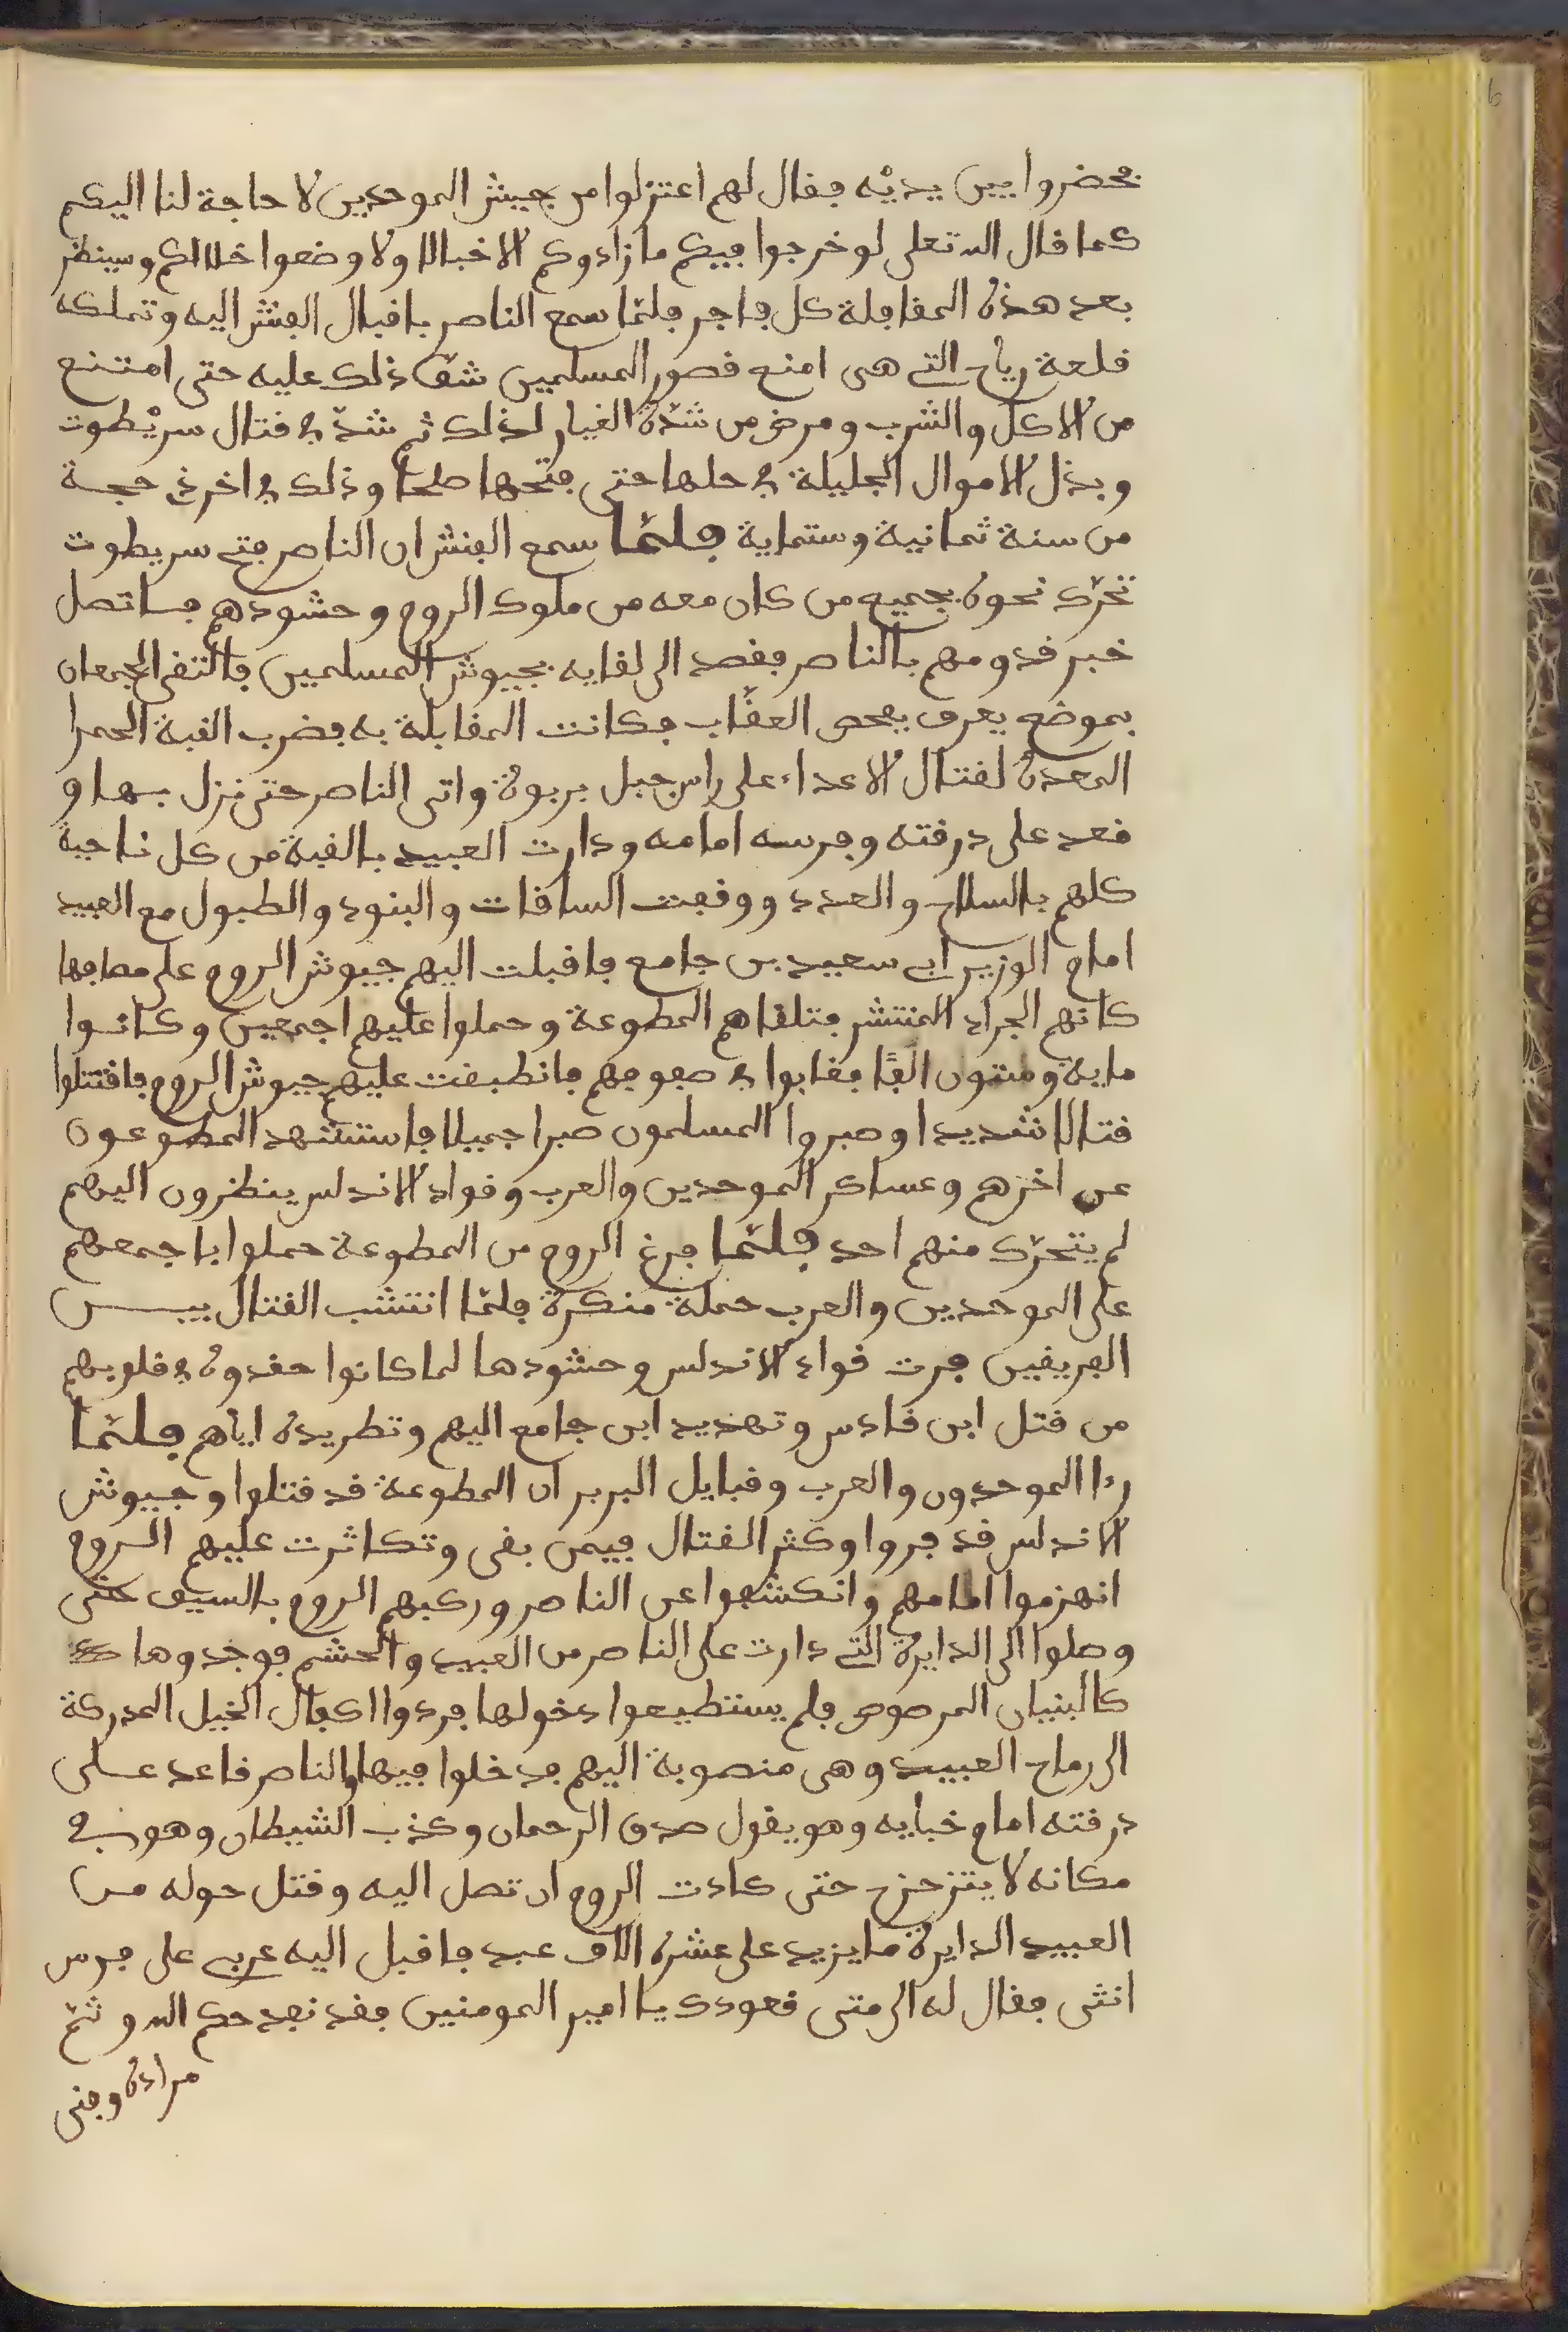 فحضروا بين يديه فقال لهم اعتزلوا من جيش الموحدين لا حاجة لنا اليكم
كما قال الله تعلى لو خرجوا فيكم ما زادوكم الا خبالا ولا وضعوا خلالكم وسينظر
بعد هذه المقافلة كل فاجر فلمّا سمع الناصر باقبال الفنش اليه وتملكه
قلعة رباح التي هى امنع قصور المسلمين شقّ ذلك عليه حتى امتنع
من الاكل والشرب ومرض من شدّة الغيار لذلك ثم شدّ في قتال سريْطوت
وبذل الاموال الجليلة في حلها حتى فتحها صلحا وذلك في اخر ذي حجـة
من سنة ثمانية وستماية فلمّا سمع الفنش ان الناصر فتح سريطوت
تحرّك نحوه بجميع من كان معه من ملوك الروم وحشودهم فـاتصل
خبر قدومهم بالناصر فقصد الى لقايه بجيوش المسلمين فالتقى الجمعان
بموضع يعرف بحصن العقّاب فكانت المقابلة به فضرب القبة الحمرا
المعدة لقتال الاعداء على راس جبل بربوة واتى الناصر حتى نزل بـها و
قعد على درقته وفرسه امامه ودارت العبيد بالقبة من كل ناحية
كلهم بالسلاح والعدد ووقفت الساقات والبنود والطبول مع العبيد
امام الوزير ابي سعيد بن جامع فاقبلت اليهم جيوش الروم على مصافها
كانهم الجراد المنتشر فتلقاهم المطوعة وحملوا عليهم اجمعين وكانـوا
ماية وستون الفًا فغابوا في صفوفهم فانطبقت عليهم جيوش الروم فاقتتلوا
قتالا شديدا وصبروا المسلمون صبرا جميلا فاستشهد المطوعون
عن اخرهم وعساكر الموحدين والعرب وقواد الاندلس ينظرون اليهم
لم يتحرّك منهم احد فلمّا فرغ الروم من المطوعة حملوا باجمعهم
على الموحدين والعرب حملة منكرة فلمّا انتشب القتال بيـــن
الفريقين فرت قواد الاندلس وحشودها لما كانوا حقدوه في قلوبهم
من قتل ابن قادس وتهديد ابن جامع اليهم وتطريده اياهم فلـمّا
رءا الموحدون والعرب وقبايل البربر ان المطوعة قد قتلوا وجيوش
الاندلس قد فروا وكثر القتال فيمن بقى وتكاثرت عليهم الـروم
انهزموا امامهم وانكشفوا عن الناصر وركبهم الروم بالسيف حتى
وصلوا الى الدايرة التي دارت على الناصر من العبيد والحشم فوجدوها
كالبنيان المرصوص فلم يستطيعوا دخولها فردوا اكفال الخيل المدركة
الى رماح العبيد وهى منصوبة اليهم فدخلوا فيها والناصر قاعد عـلى
درقته امام خبايه وهو يقول صدق الرحمان وكذب الشيطان وهو في
مكانه لا يتزحزح حتى كادت الروم ان تصل اليه وقتل حوله مـن
العبيد الدايرة ما يزيد على عشرة الاف عبد فاقبل اليه عربي على فرس
انثى فقال له الى متى قعودك يا امير المومنين فقد نفد حكم الله وتمّ
مراده وفنى